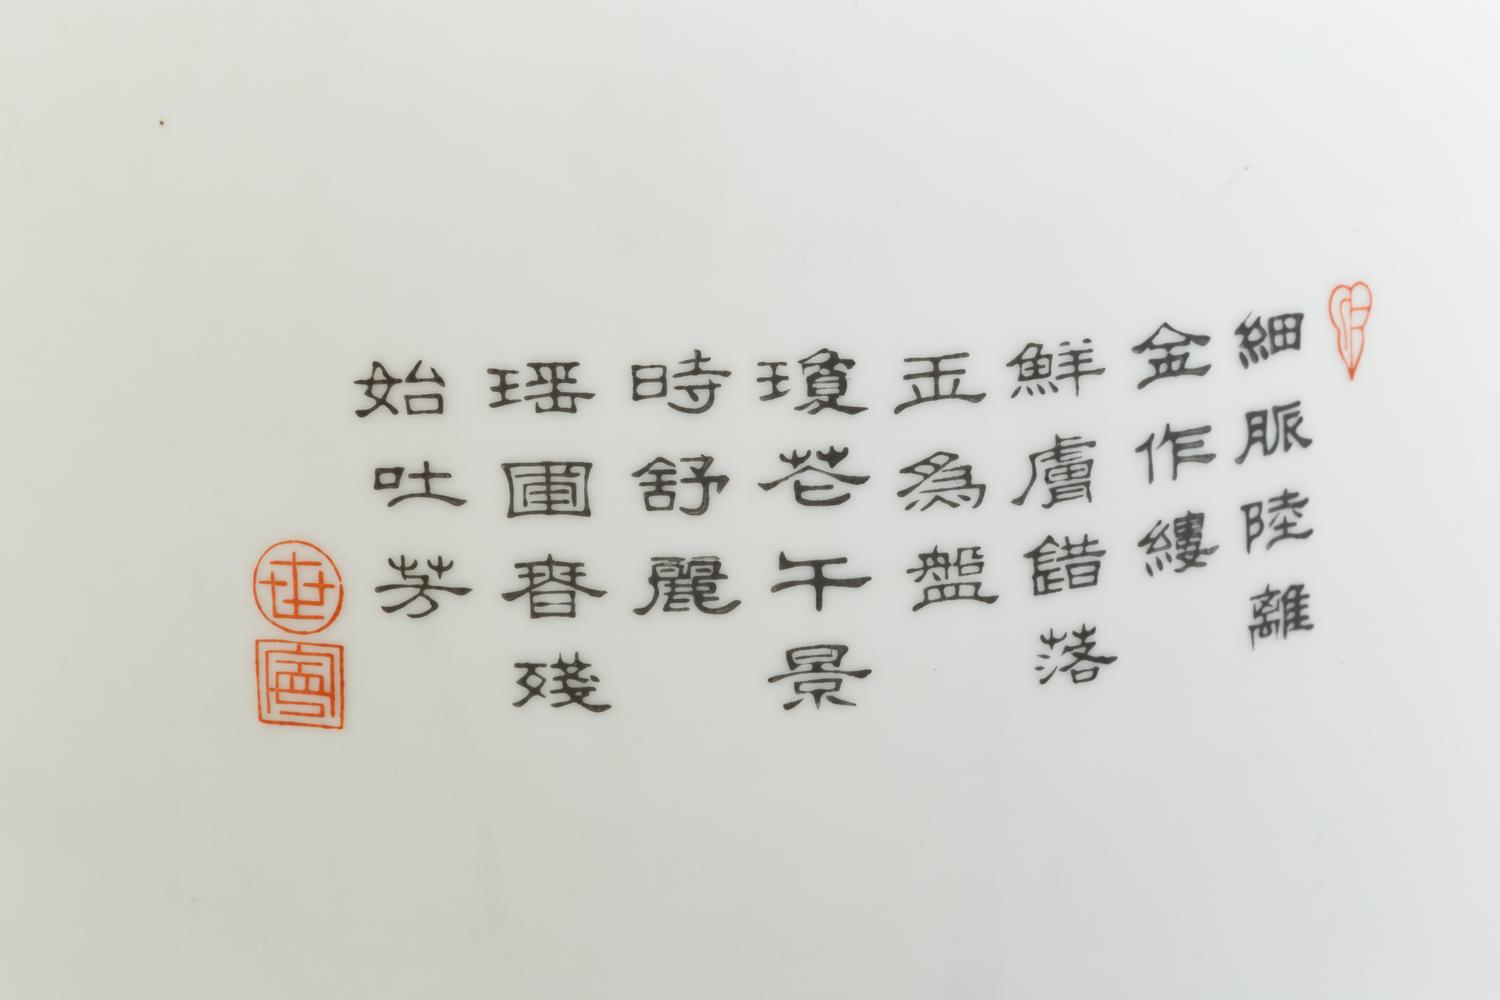 細脈陸離
金作縷
鮮膚錯落
玉為盤
瓊芲午景
時舒麗
瑶圃春殘
始吐芳
世寧